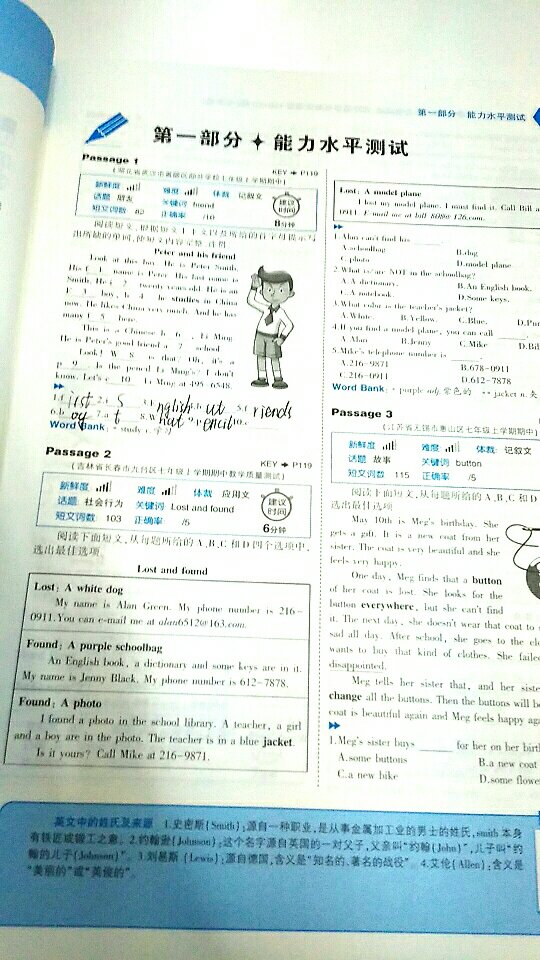 第一部分 能力水平测试
第一部分 ✦ 能力水平测试
Passage 1
KEY ➔ P119
新鲜度 难度 体裁 记叙文
话题 朋友 关键词 found
短文词数 82 正确率 /10
建议时间
8分钟
Peter and his friend
Look at this boy. He is Peter Smith.
His f 1 name is Peter. His last name is
Smith. He i 2 twenty years old. He is an
E 3 boy, b 4 he studies in China
now. He likes China very much. And he has
many f 5 here.
This is a Chinese b 6 , Li Ming.
He is Peter's good friend a 7 school.
Look! W 8 is that? Oh, it's a
p 9 . Is the pencil Li Ming's? I don't
know. Let's c 10 Li Ming at 495-6548.
1.f irst 2.i s 3.E nglish 4.b ut 5.f riends
6.b oy 7.a t 8.W hat 9.p encil 10.c
Word Bank: * study v.学习
Passage 2
KEY ➔ P119
(吉林省长春市九台区七年级上学期期中教学质量测试)
新鲜度 难度 体裁 应用文
话题 社会行为 关键词 Lost and found
短文词数 103 正确率 /5
建议时间
6分钟
阅读下面短文,从每题所给的A、B、C和D四个选项中,
选出最佳选项。
Lost and found
Lost: A white dog
My name is Alan Green. My phone number is 216-
0911. You can e-mail me at alan6512@163.com.
Found: A purple schoolbag
An English book, a dictionary and some keys are in it.
My name is Jenny Black. My phone number is 612-7878.
Found: A photo
I found a photo in the school library. A teacher, a girl
and a boy are in the photo. The teacher is in a blue jacket.
Is it yours? Call Mike at 216-9871.
Lost: A model plane
I lost my model plane. I must find it. Call Bill a
0911. E-mail me at bill 808@126.com.
1.Alan can't find his
A.schoolbag B.dog
C.photo D.model plane
2.What is/are NOT in the schoolbag?
A.A dictionary. B.An English book.
C.A notebook. D.Some keys.
3.What color is the teacher's jacket?
A.White. B.Yellow. C.Blue. D.Pu
4.If you find a model plane, you can call
A.Alan B.Jenny C.Mike D.Bil
5.Mike's telephone number is
A.216-9871 B.678-0911
C.216-0911 D.612-7878
Word Bank: * purple adj.紫色的 ** jacket n.夹
Passage 3
(江苏省无锡市惠山区七年级上学期期中)
新鲜度 难度 体裁 记叙文
话题 故事 关键词 button
短文词数 115 正确率 /5
阅读下面短文,从每题所给的A、B、C和D
选出最佳选项
May 10th is Meg's birthday. She
gets a gift. It is a new coat from her
sister. The coat is very beautiful and she
feels very happy.
One day, Meg finds that a button
of her coat is lost. She looks for the
button everywhere, but she can't find
it. The next day, she doesn't wear that coat to
sad all day. After school, she goes to the clo
wants to buy that kind of clothes. She failed
disappointed.
Meg tells her sister that, and her siste
change all the buttons. Then the buttons will b
coat is beautiful again and Meg feels happy aga
1.Meg's sister buys for her on her birth
A.some buttons B.a new coat
C.a new bike D.some flowe
英文中的姓氏及来源 1.史密斯(Smith):源自一种职业,是从事金属加工业的男士的姓氏,smith 本身
有铁匠或锻工之意。2.约翰逊(Johnson):这个名字源自英国的一对父子,父亲叫“约翰(John)”,儿子叫“约
翰的儿子(Johnson)”。3.刘易斯(Lewis):源自德国,含义是“知名的、著名的战役”。4.艾伦(Allen):含义是
“美丽的”或“英俊的”。